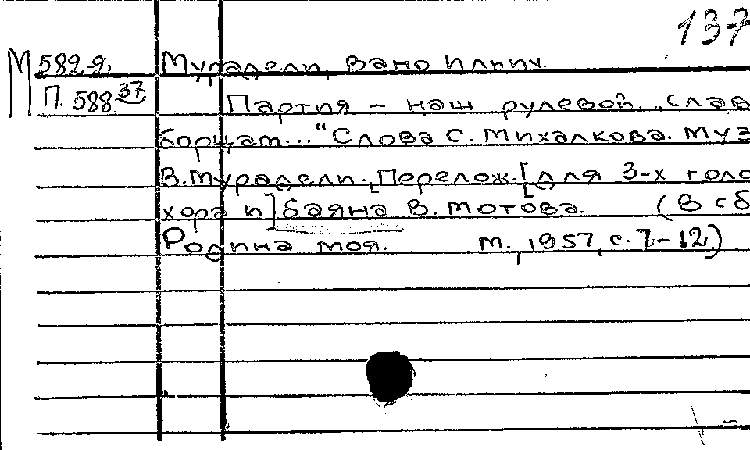 137
М 582-я. Мурадели, Вано Ильич.
П. 588 37 Партия – наш рулевой. „Слав
борцам..." Слова С. Михалкова. Муз
В. Мурадели. Перелож. [для 3-х голо
хора и] баяна В. Мотова. (В сб
Родина моя. М., 1957, с. 7-12)